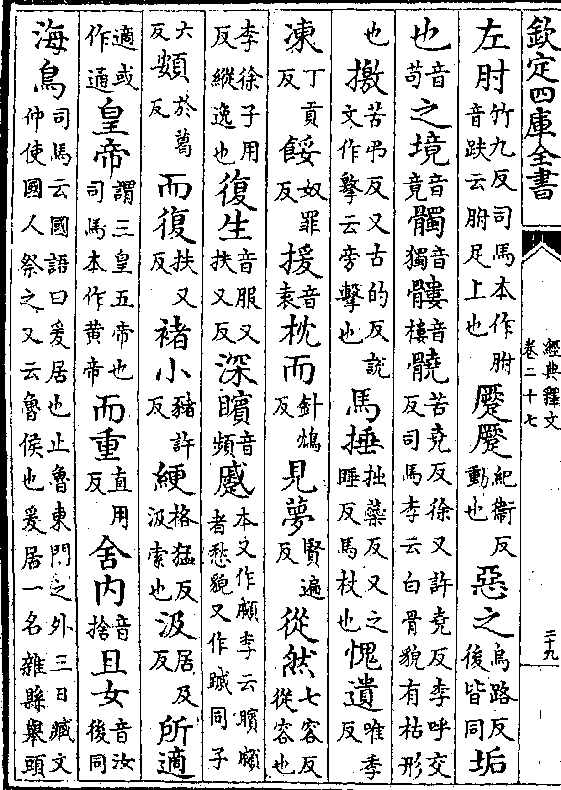 欽定四庫全書
經典釋文
卷二十七
二十九
左肘竹九反司馬本作胕音趺云胕足上也蹷蹷紀衞反動也惡之烏路反後皆同垢
也音苟之境音竟髑音獨髏音樓髐苦堯反徐又許堯反李呼交反司馬李云白骨貌有枯形
也撽苦弔反又古的反說文作擊云旁擊也馬捶拙蘂反又之睡反馬杖也愧遺唯季反
凍丁貢反餒奴罪反援音袁枕而針鴆反見夢賢遍反從然七容反從容也
李徐子用反縱逸也復生音服又扶又反深矉音頻蹙本又作顣李云矉顣者愁貌又作䠞同子
六反頞於葛反而復扶又反褚小豬許反綆格猛反汲索也汲居及反所適
適或作適皇帝謂三皇五帝也司馬本作黃帝而重直用反舍內音捨且女音汝後同
海鳥司馬云國語曰爰居也止魯東門之外三日臧文仲使國人祭之又云魯侯也爰居一名雜縣舉頭